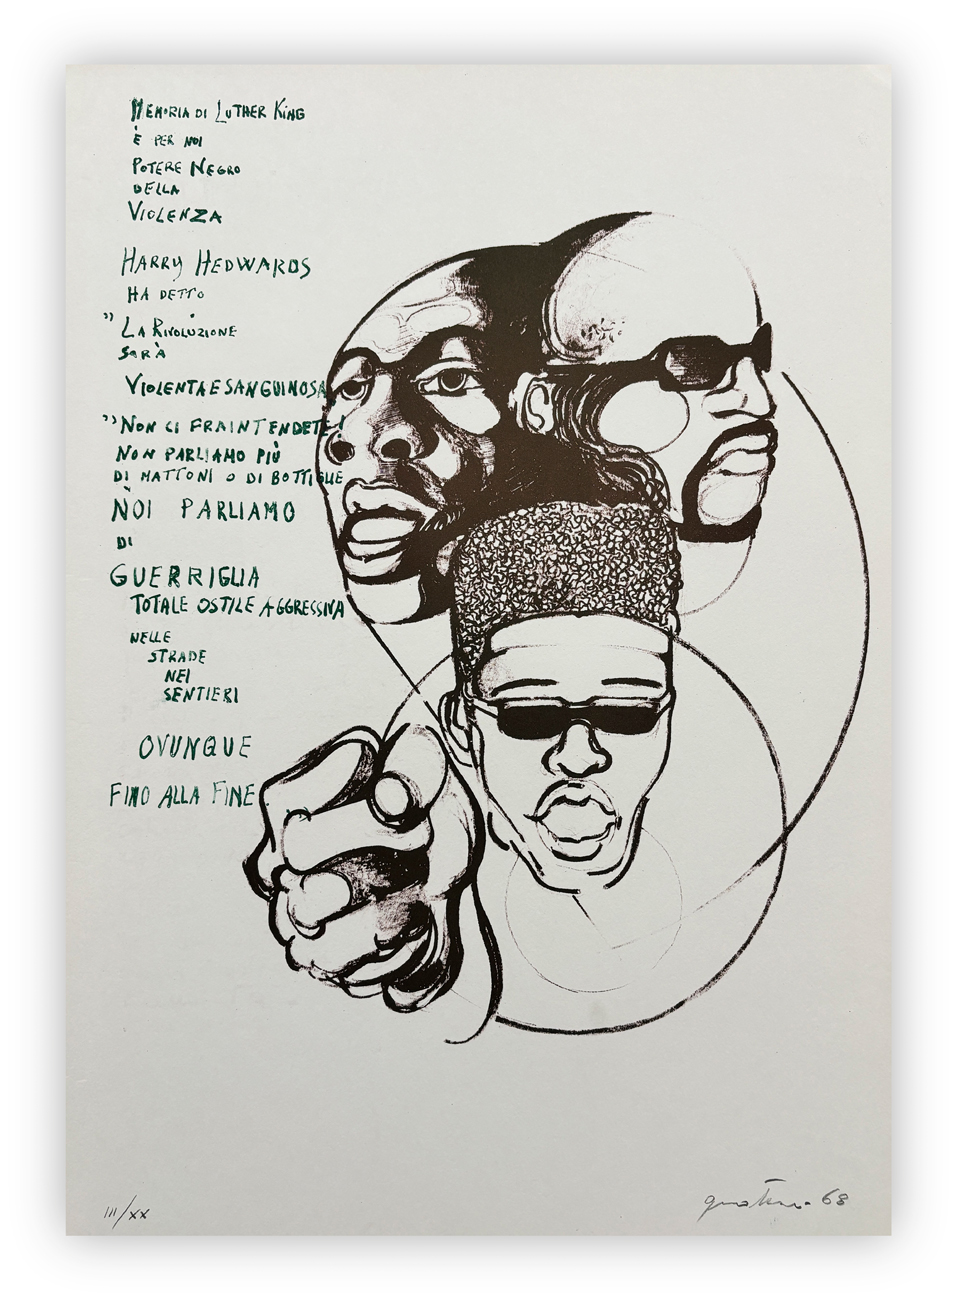 MEMORIA DI LUTHER KING
È PER NOI
POTERE NEGRO
DELLA
VIOLENZA
HARRY HEDWARDS
HA DETTO
"LA RIVOLUZIONE
SARÀ
VIOLENTA E SANGUINOSA
"NON CI FRAINTENDETE!
NON PARLIAMO PIÙ
DI MATTONI O DI BOTTIGLIE
NOI PARLIAMO
DI
GUERRIGLIA
TOTALE OSTILE AGGRESSIVA
NELLE
STRADE
NEI
SENTIERI
OVUNQUE
FINO ALLA FINE
III/XX
68